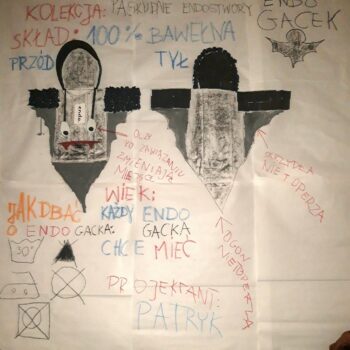 KOLEKCJA: PASKUDNE ENDOSTWORY
ENDO
GACEK
SKŁAD: 100% BAWEŁNA
PRZÓD
TYŁ
endo
OCZY
PO ZAWIĄZANIU
ZMIENIAJĄ
MIEJSCE
SKRZYDŁA
NIETOPERZA
OGON
NIETOPERZA
JAK DBAĆ
O ENDO GACKA:
30°
WIEK:
KAŻDY ENDO
GACKA
CHCE MIEĆ
PROJEKTANT:
PATRYK